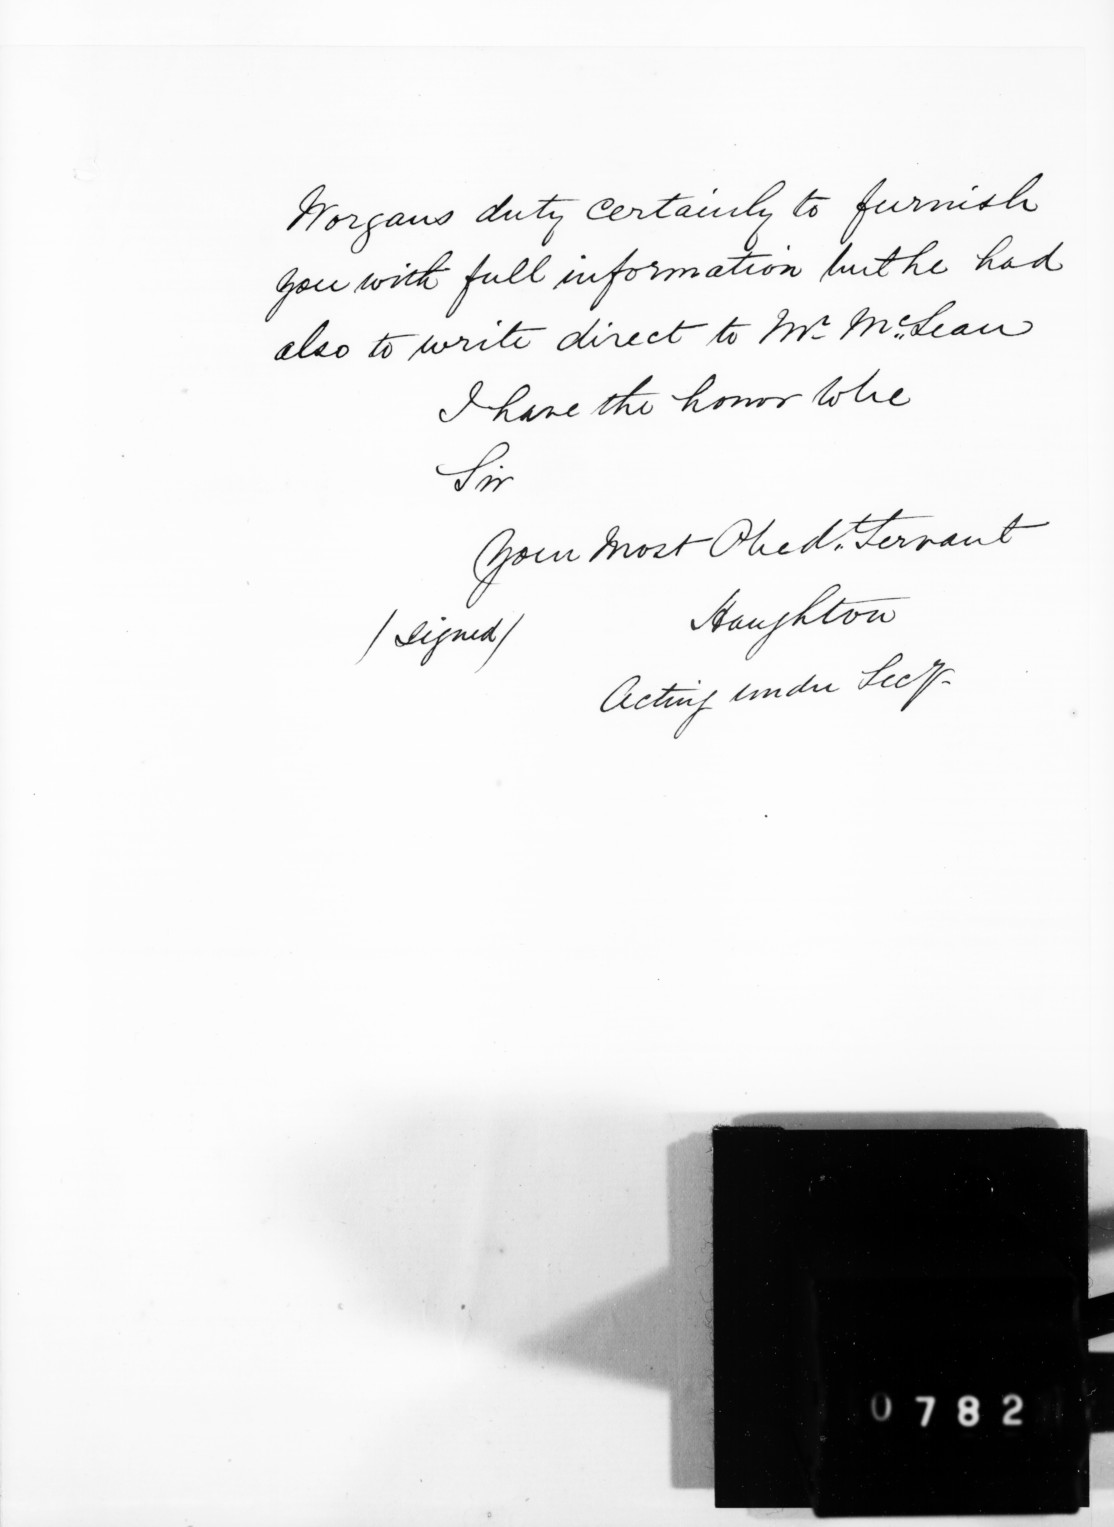 Worgans duty certainly to furnish
you with full information but he had
also to write direct to Mr. McLean
I have the honor to be
Sir
Your Most Obedt. Servant
(signed) Haughton
Acting under Secy.
0782